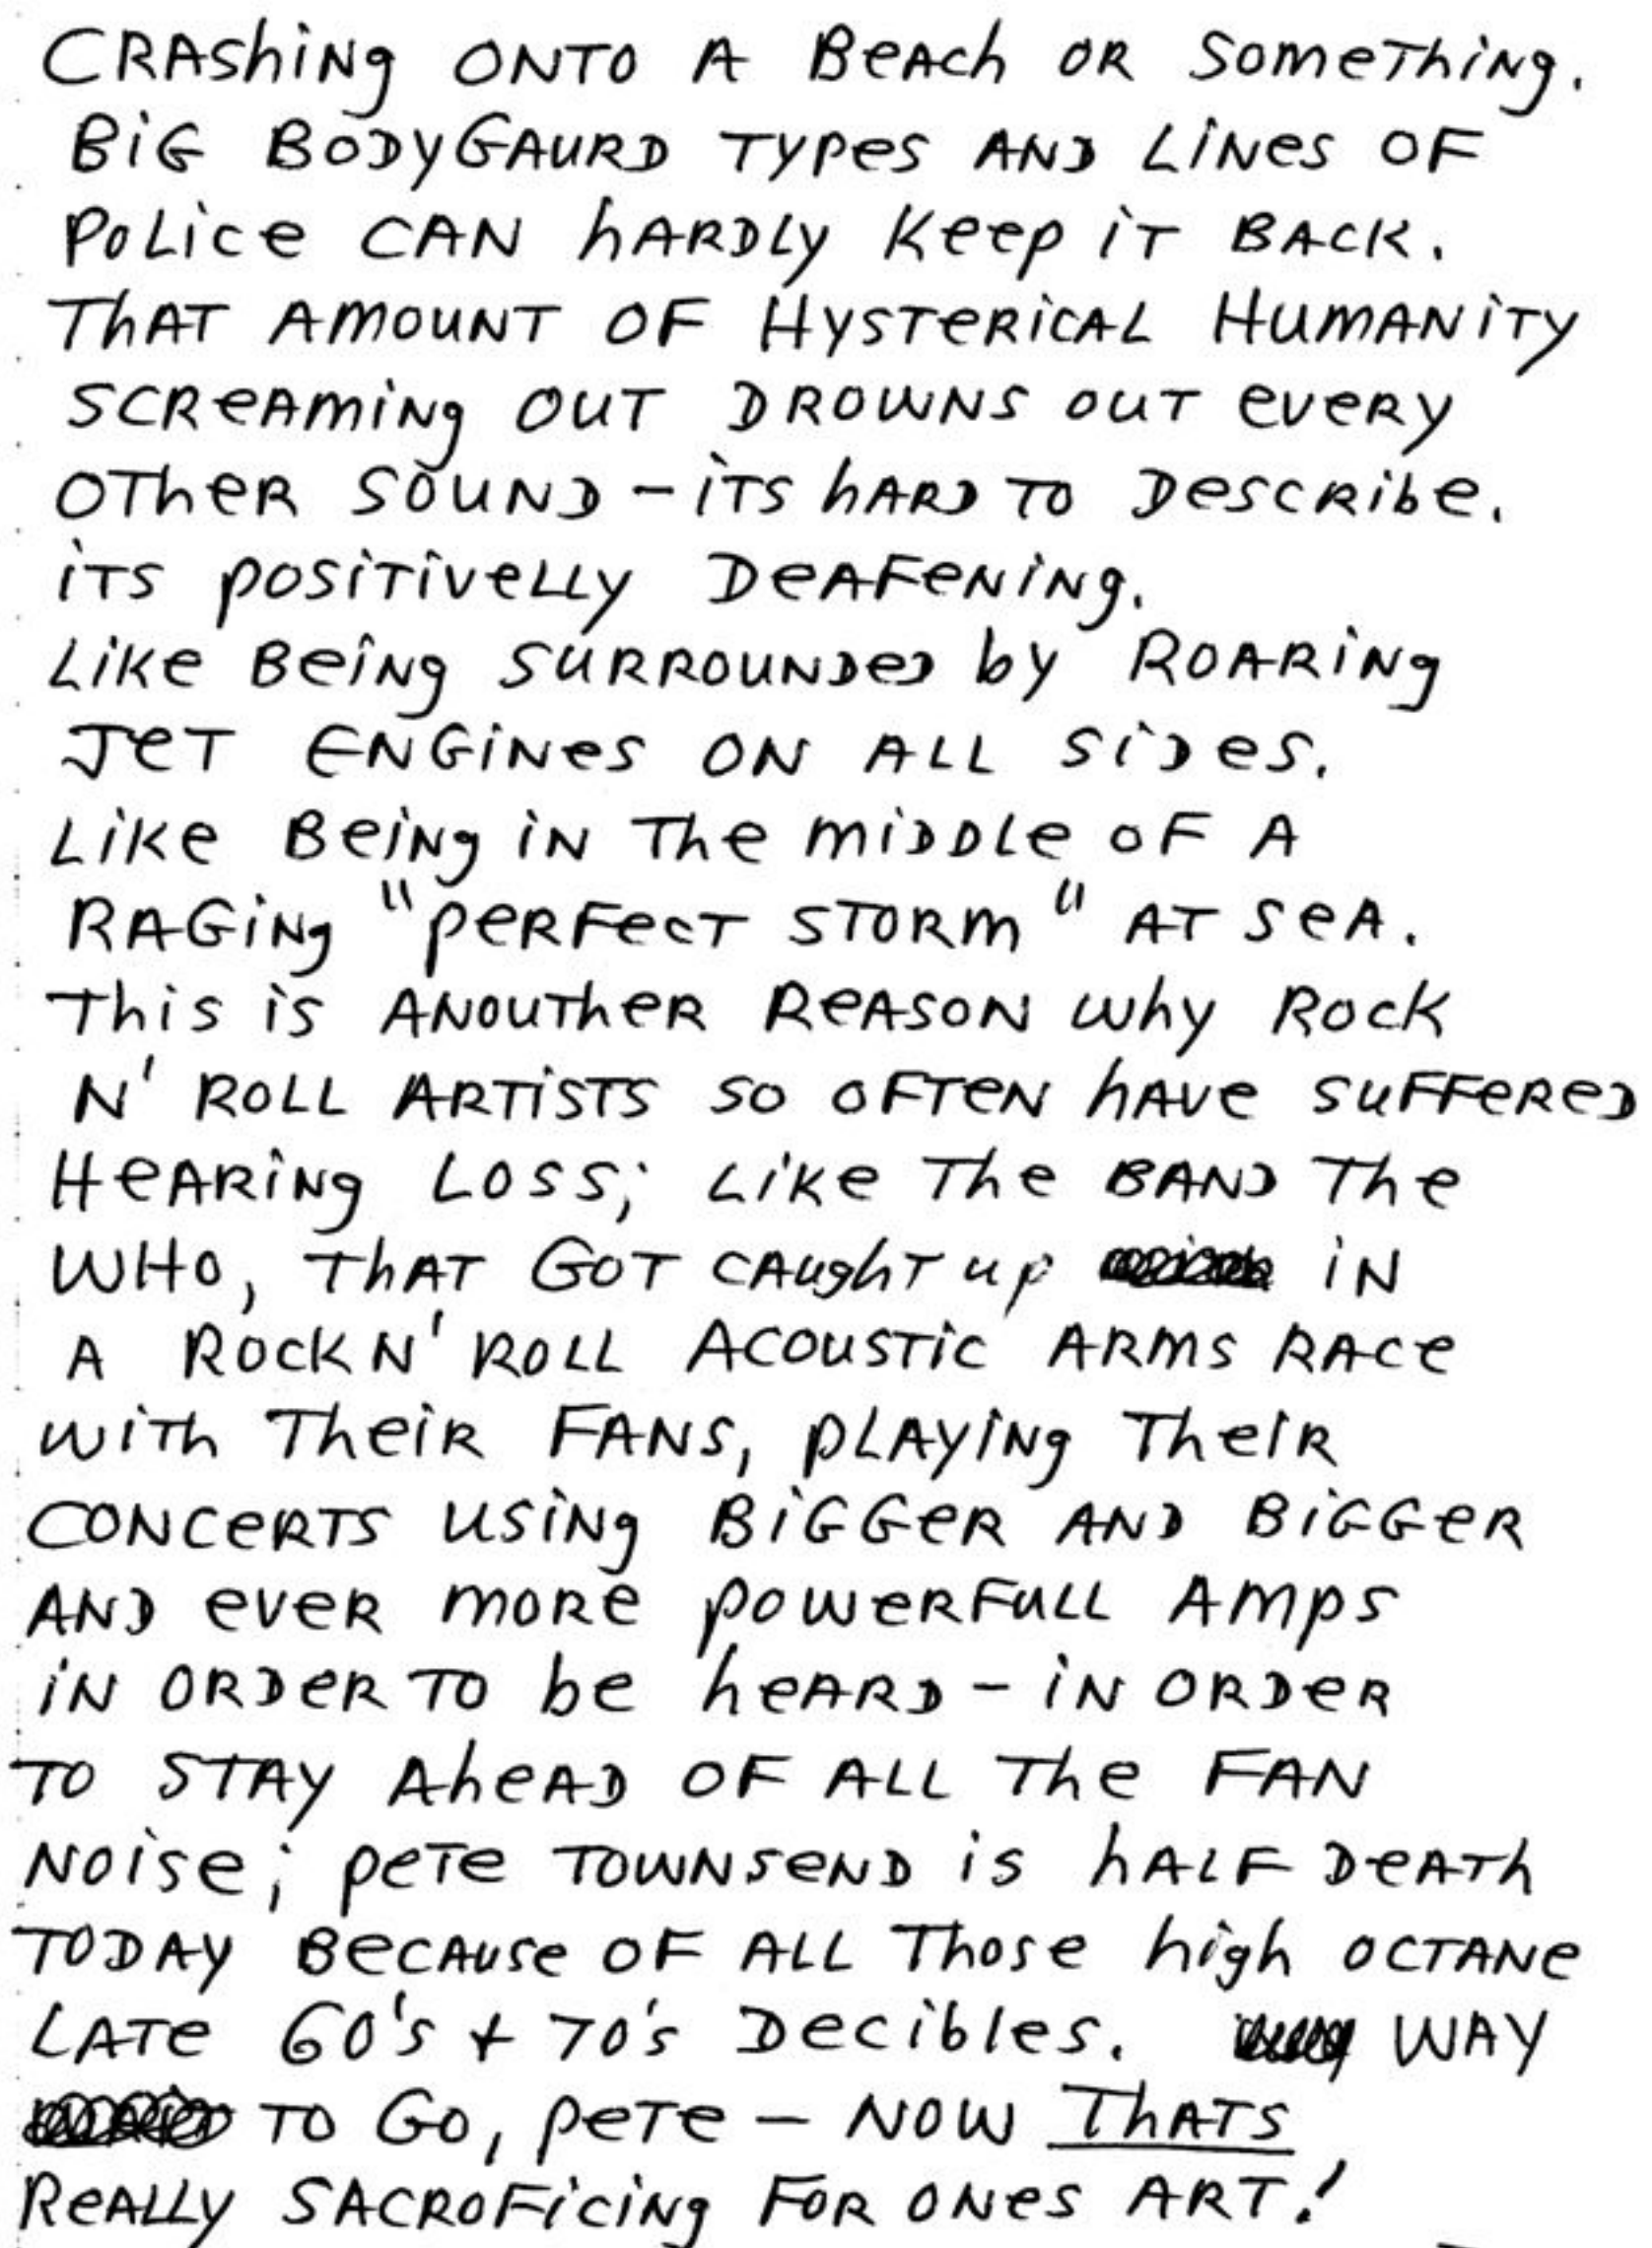 CRAshiNg ONTO A BeAch OR SomeThiNg.
BiG BODyGAURD TyPes AND LiNes OF
PoLice CAN hARDLy Keep iT BACK.
ThAT AMOUNT OF HySTeRiCAL HumANiTy
SCReAmiNg OUT DROWNS OUT eveRy
OTheR SOUND - iTS hARD TO DescRibe.
iTS posiTiveLLy DeAFeNiNg.
Like BeiNg SURROUNDeD by ROARiNg
JeT ENGiNes ON ALL SiDes.
Like BeiNg iN The miDDLe oF A
RAGiNg "peRFecT STORm" AT SeA.
This is ANOUTheR ReASON why RocK
N' ROLL ARTiSTS SO OFTeN hAVe SuFFeReD
HeARiNg Loss; Like The BAND The
WHO, ThAT GOT CAughT up iN
A ROCK N' ROLL ACOUSTiC ARMS RACe
wiTh TheiR FANS, pLAyiNg TheiR
CONCeRTS USiNg BiGGeR AND BiGGeR
AND eveR moRe poweRFuLL Amps
iN ORDeR TO be heARD - iN ORDeR
TO STAy AheAD OF ALL The FAN
NOise; peTe TOWNSeND is hALF DeATh
TODAy BecAuse OF ALL Those high OCTANe
LATe 60's + 70's Decibles. WAY
TO GO, peTe - NOW ThATS
ReALLy SACROFiciNg FOR ONes ART!